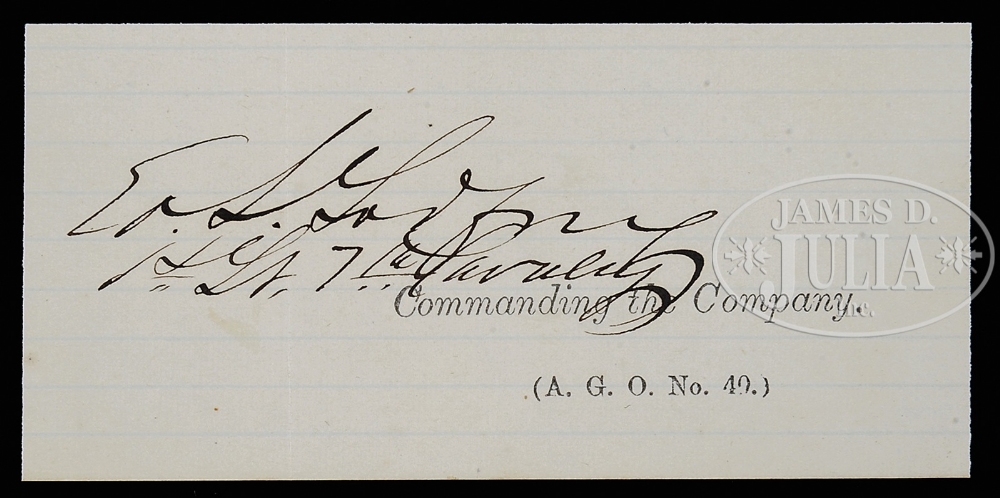 E. S. Godfrey
1st Lt. 7th Cavalry
Commanding the Company.
(A. G. O. No. 40.)
JAMES D.
JULIA
Inc.